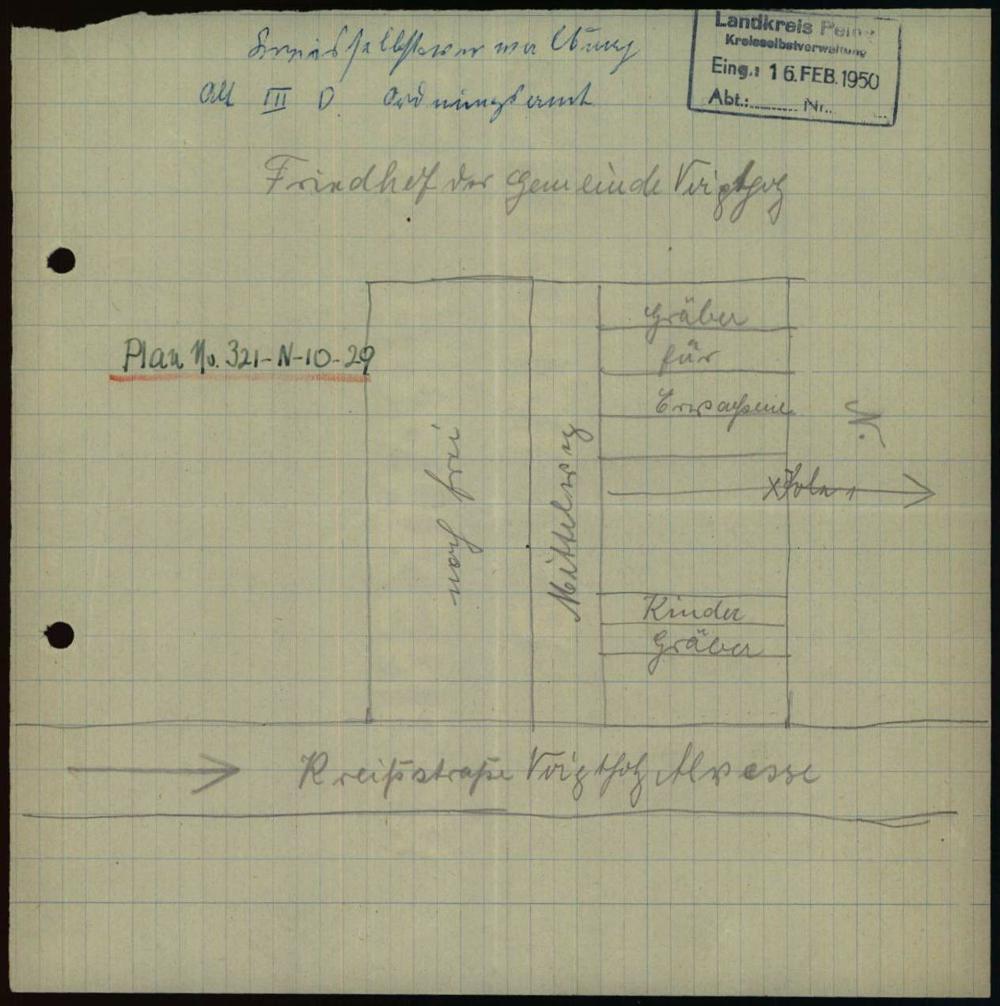 Kreisselbstverwaltung
Abt III D Ordnungsamt
Landkreis Peine
Kreisselbstverwaltung
Eing.: 16. FEB. 1950
Abt.: Nr.
Friedhof der Gemeinde Voigtholz
Plan No. 321-N-10-29
Gräber
für
Erwachsene
N.
noch frei
Mittelweg
Kinder
Gräber
Kreißstraße Voigtholz Alvesse